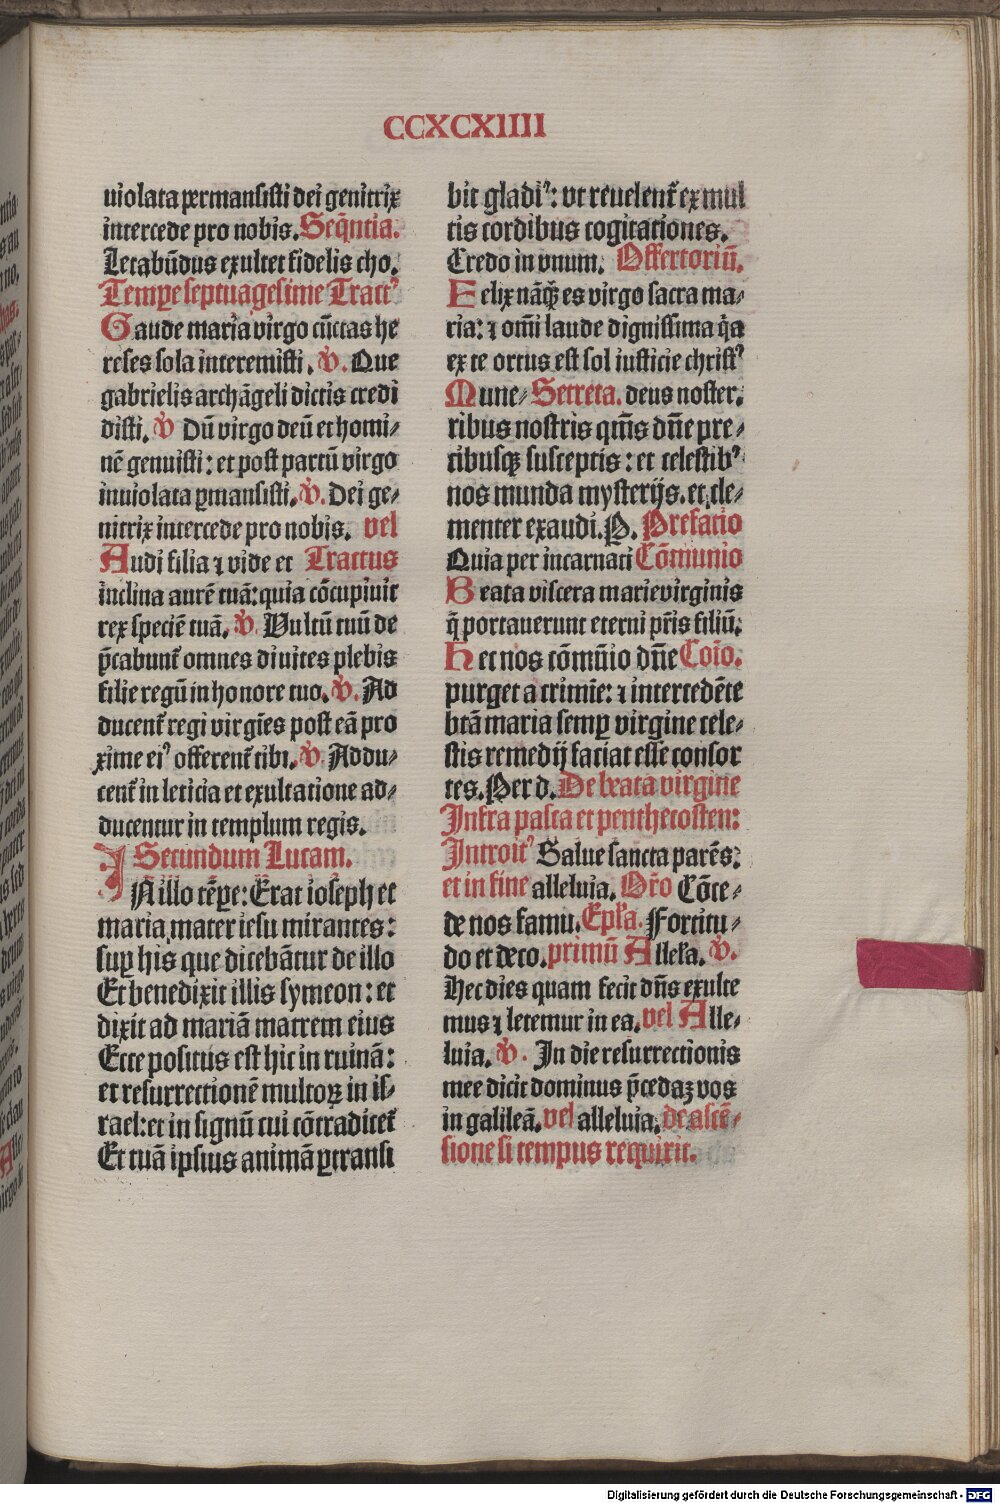 CCXCXIIII
uiolata permansisti dei genitrix
intercede pro nobis. Seq̄ntia.
Letabūdus exultet fidelis cho.
Tempe septuagesime Tract⁹
Gaude maria virgo cūctas he
reses sola interemisti. ℣. Que
gabrielis archāgeli dictis credi
disti. ℣ Dū virgo deū et homi⸗
nē genuisti: et post partū virgo
inuiolata ꝑmansisti. ℣. Dei ge⸗
nitrix intercede pro nobis. vel
Audi filia ⁊ vide et Tractus
inclina aurē tuā: quia cōcupiuit
rex speciē tuā. ℣. Vultū tuū de
p̄cabunt̄ omnes diuites plebis
filie regū in honore tuo. ℣. Ad
ducent̄ regi virgīes post eā pro
xime ei⁹ offerent̄ tibi. ℣. Addu⸗
cent̄ in leticia et exultatione ad⸗
ducentur in templum regis.
Secundum Lucam.
INillo tēpe: Erat ioseph et
maria mater iesu mirantes:
suꝑ his que dicebātur de illo
Et benedixit illis symeon: et
dixit ad mariā matrem eius
Ecce positus est hic in ruinā:
et resurrectionē multoꝝ in is⸗
rael: et in signū cui cōtradicet̄
Et tuā ipsius animā ꝑtransi
bit gladi⁹: vt reuelent̄ ex mul
tis cordibus cogitationes.
Credo in vnum. Offertoriū.
Felix nāqꝫ es virgo sacra ma⸗
ria: ⁊ om̄i laude dignissima q̄a
ex te ortus est sol iusticie christ⁹
Mune⸗ Secreta. deus noster.
ribus nostris qm̄s dn̄e pre⸗
cibusqꝫ susceptis: et celestib⁹
nos munda mysterijs. et cle⸗
menter exaudi. P. Prefatio
Quia per incarnati Cōmunio
Beata viscera marie virginis
q̄ portauerunt eterni p̄ris filiū.
Hec nos cōmūio dn̄e Cōio.
purget a crimīe: ⁊ intercedēte
btā maria semꝑ virgine cele⸗
stis remedij faciat esse consor
tes. Per d. De beata virgine
Infra pasca et penthecosten:
Introit⁹ Salue sancta parēs.
et in fine alleluia. Or̄o Cōce⸗
de nos famu. Ep̄ła. Fortitu⸗
do et deco. primū Alleła. ℣.
Hec dies quam fecit dn̄s exulte
mus ⁊ letemur in ea. vel Alle⸗
luia. ℣. In die resurrectionis
mee dicit dominus p̄cedaꝫ vos
in galileā. vel alleluia. de ascē⸗
sione si tempus requirit.
Digitalisierung gefördert durch die Deutsche Forschungsgemeinschaft - DFG